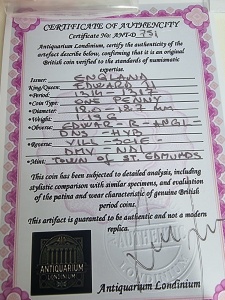 CERTIFICATE OF AUTHENCITY
Certificate No: ANT-D 751
Antiquarium Londinium, certify the authenticity of the
artefact described below, confirming that it is an original
British coin verified to the standards of numismatic
expertise.
Issuer: ENGLAND
King/Queen: EDWARD
•Period: 1314 - 1317
•Coin Type: ONE PENNY
•Diameter: mm
•Weight:
•Obverse: EDWAR-R-ANGL-
DNS-HYB
•Reverse: VILL-SCIE-
DMV-NDI
•Mint: TOWN OF ST. EDMUNDS
This coin has been subjected to detailed analysis, including
stylistic comparison with similar specimens, evaluation
of the patina and wear characteristic of genuine British
period coins.
This artifact is guaranteed to be authentic and not a modern
replica.
ANTIQUARIUM
LONDINIUM
AUTHENTIC
Antiquarium Londinium